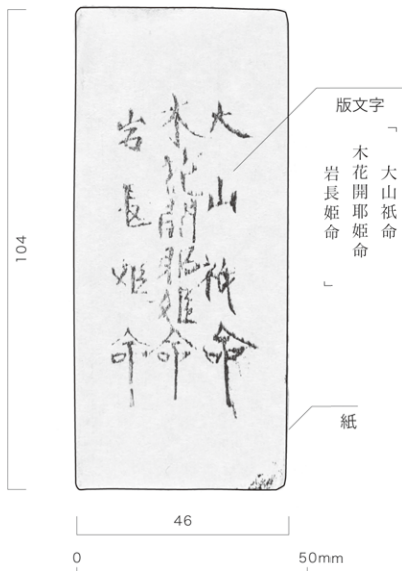 大山祇命
木花開耶姫命
岩長姫命
版文字
「大山祇命
木花開耶姫命
岩長姫命」
紙
104
46
0
50mm